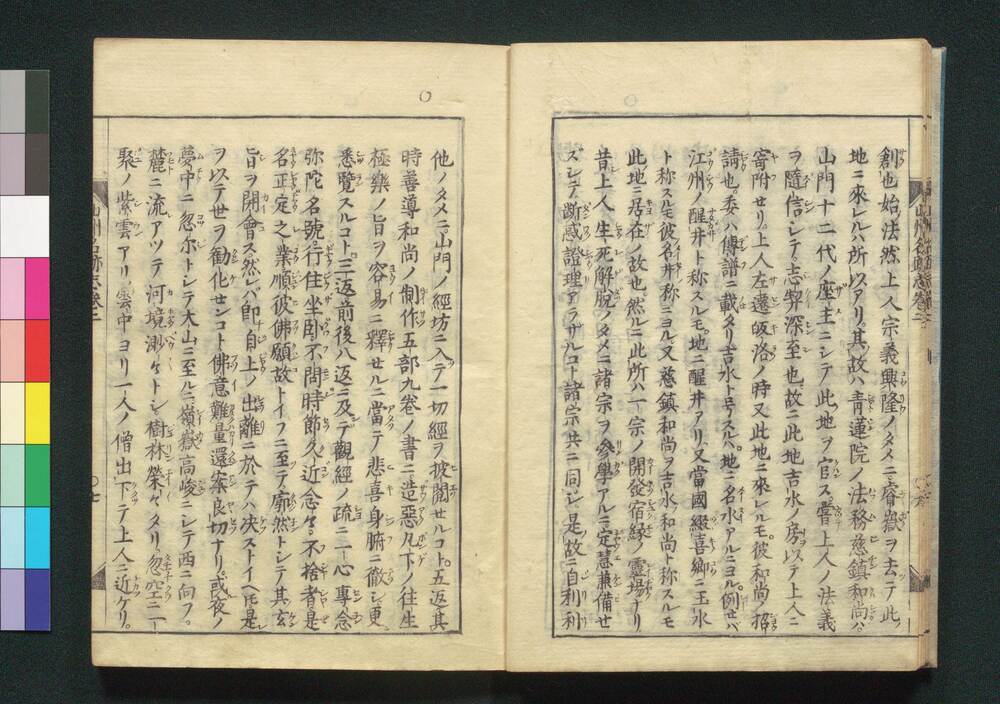 創也始法然上人宗義興隆ノタメニ睿嶽ヲ去ニ此
地ニ來レルハ所以アリ其故ハ青蓮院ノ法務慈鎮和尚ハ
山門十二代ノ座主ニシテ此地ヲ官ス嘗上人ノ法義
ヲ隨信シテ志契深至也故ニ此地吉水ノ房ヲ以テ上人ニ
寄附セリ上人左遷皈洛ノ時又此地ニ來レルモ彼和尚ノ招
請也委ハ傳譜ニ載タリ吉水ト号スルハ地ニ名水アルニヨル例セハ
江州ノ醒井ト称スルモ地ニ醒井アリ又當國綴喜郷ニ玉水
ト称スルモ彼名井称ニヨル又慈鎮和尚ヲ吉水ノ和尚ト称スルモ
此地ニ居在ノ故也然ルニ此所ハ一宗ノ開發宿縁ノ靈場ナリ
昔上人生死解脱ノタメニ諸宗ヲ參學アルニ定慧兼備セ
スシテ断惑證理アラザルコト諸宗共ニ同シ是故ニ自利利
他ノタメニ山門ノ經坊ニ入テ一切經ヲ披閲セルコト五返其
時善導和尚ノ制作五部九巻ノ書ニ造惡凡下ノ往生
極樂ノ旨ヲ容易ニ釋セルニ當テ悲喜身腑ニ徹シ更
悉覽スルコト三返前後八返ニ及デ觀經ノ疏ニ一心專念
弥陀名號行住坐卧不問時節久近念々不捨者是
名正定之業順彼佛願故トイフニ至テ廓然トシテ其玄
旨ヲ開會ス然レバ即自上ノ出離ニ於テハ決ストイヘ𪜈是
ヲ以テ世ヲ勧化センコト佛意難量還案良切ナリ或夜ノ
夢中ニ忽尓トシテ大山ニ至ルニ嶺嶽高峻ニシテ西ニ向フ
麓ニ流アツテ河境渺々トシ樹林榮々タリ忽空ニ一
聚ノ紫雲アリ雲中ヨリ一人ノ僧出下テ上人ニ近ケリ
山州名跡志巻二